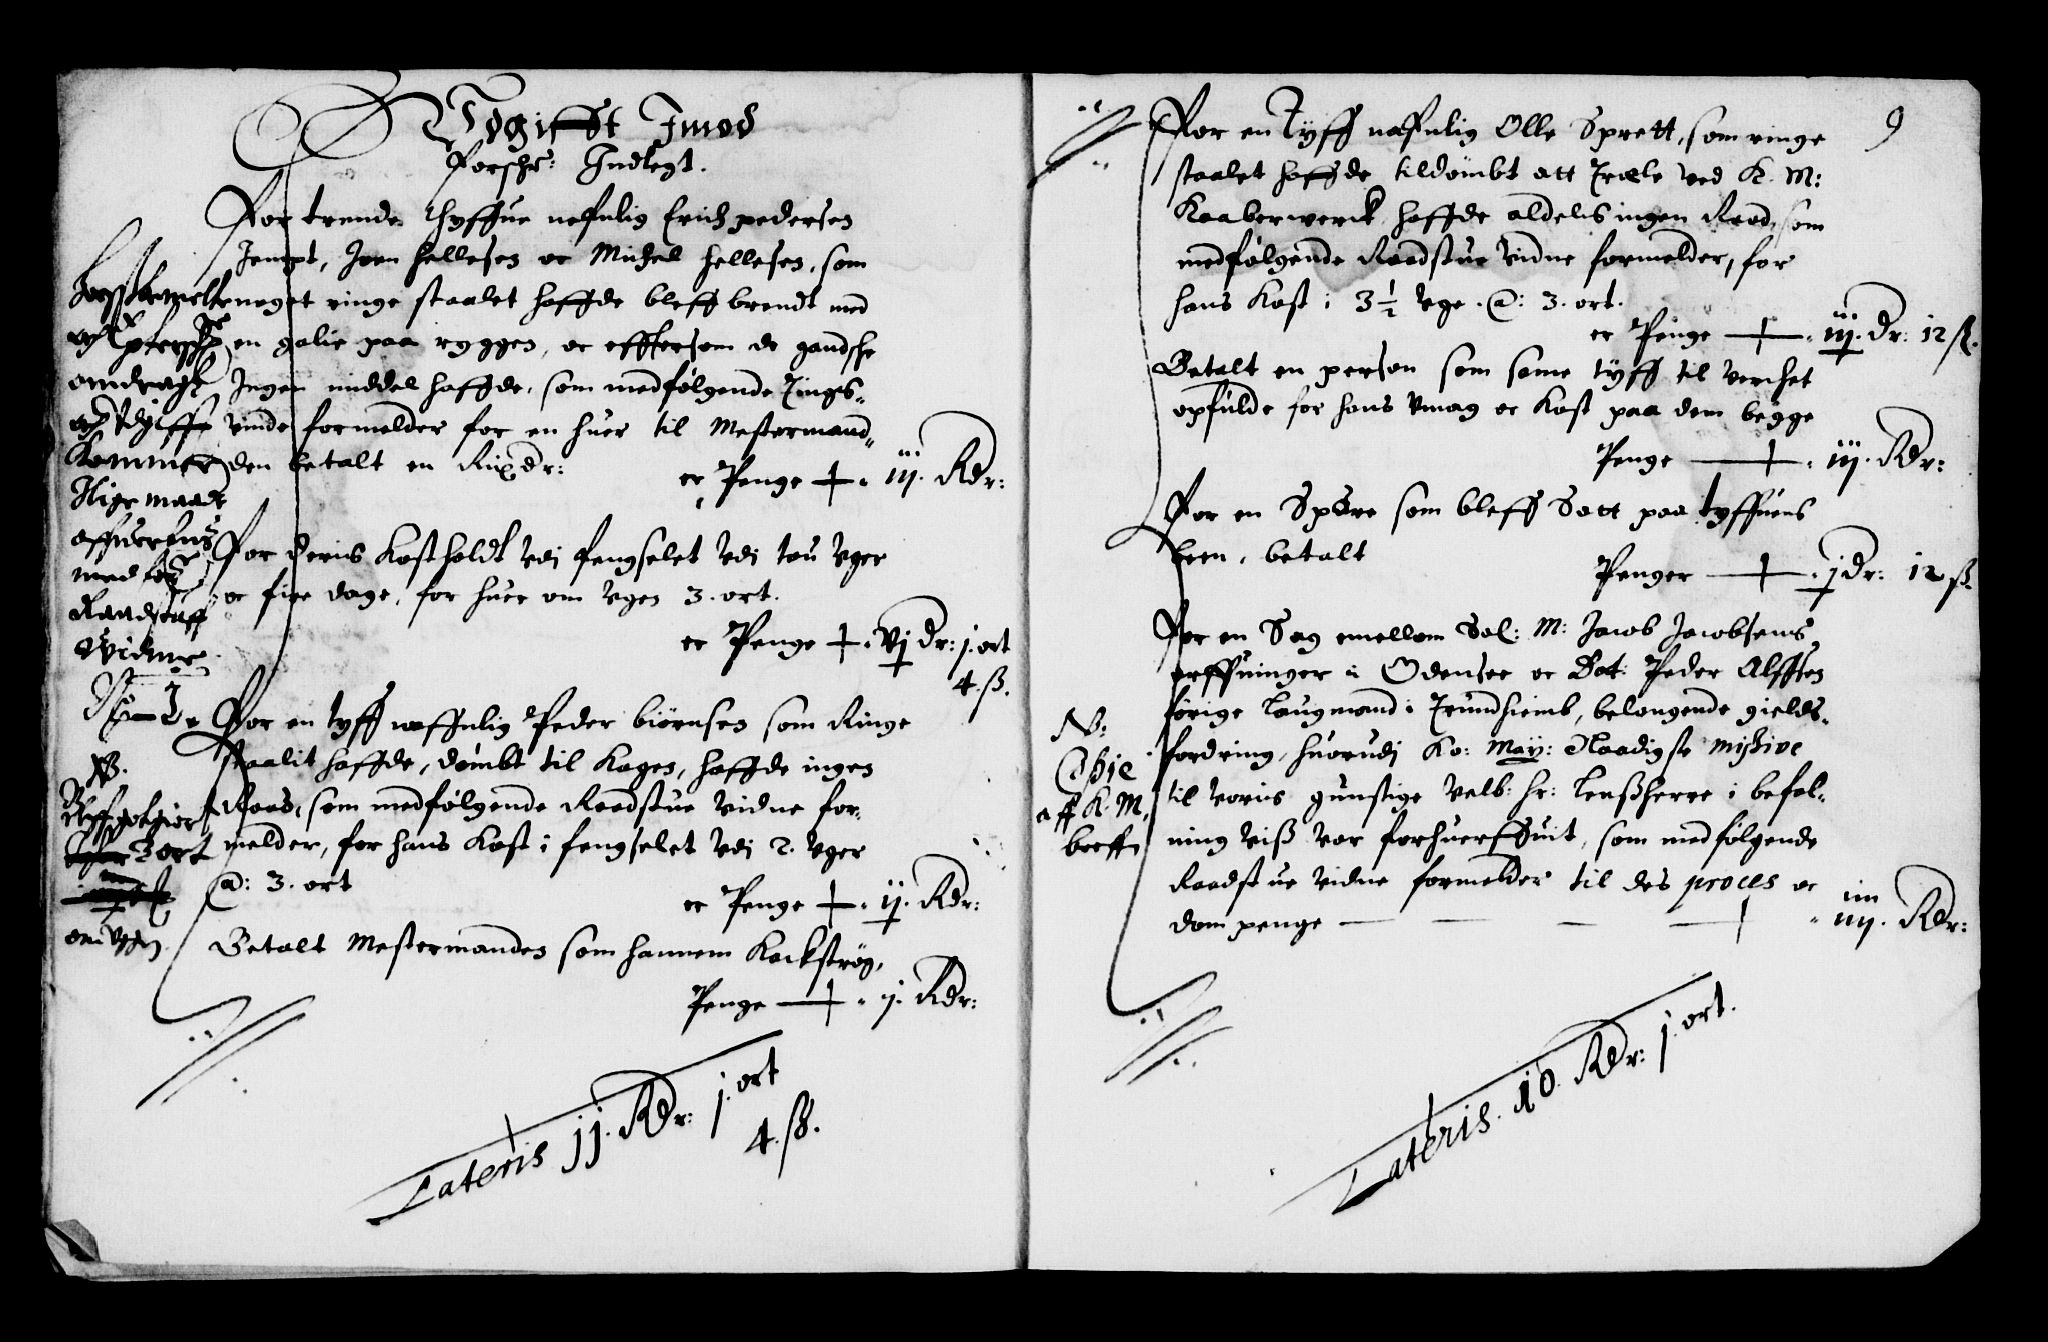 Vdgifft Imod
forschr: Indtegt.
For trende thyffue nafnlig Erich pedersen
Jempt, Joen hellesen oc Michel hellesen, som
noget ringe staalet haffde bleff brendt med
en galie paa ryggen, oc efftersom de gandsche
Ingen middel haffde, som medfølgende Tings-
vinde formelder for en huer til Mestermand-
den betalt en Rixdr:
er Penge iij. Rdr:
For deris Kostholdt vdi fengselet vdi tou vger
oc fire dage, for huer om vgen 3. ort.
er Penge vj dr: j. ort
4. ß.
For en tyff naffnlig Peder biørnsen som Ringe
staalit haffde, dømbt til Kagen, haffde ingen
Raad, som medfølgende Raadstue vidne for-
melder, for hans Kost i fengselet vdi 2. vger
@: 3. ort
er Penge ij. Rdr:
Betalt Mestermanden som hannem Kackstrøg,
Penge j. Rdr:
Lateris jj. Rdr: j. ort
4. ß.
och
och Vdgifft
Kommer
lige maade
med
Raadstuff
Widne
NB.
3 ort
om vgen
9
For en Tyff nafnlig Olle Sprett, som ringe
staalet haffde tildømbt att Træle ved K. M:
Kaaberwerck haffde aldelis ingen Raad, som
medfølgende Raadstue vidne formelder, for
hans Kost i 3 1/2 vge. @: 3. ort.
er Penge iij. dr: 12 ß.
Betalt en person som same tyff til verchet
opfulde for hans vmag oc Kost paa dem begge
Penge iij. Rdr:
For en Spøre som bleff Satt paa tyffuens
been, betalt
Penger j dr: 12 ß.
For en Sag emellom Sal: M: Jacob Jacobsens
arffuinger i Odensee oc Peder Alffsen
førige Laugmand i Trundhiemb, belangende gields-
fordring, huorudj Ko: May: Naadigste missive
til voris gunstige velb: hr: Lenßherre i befal-
ning viß var forhuerffuit, som medfølgende
Raadstue vidne formelder til des proces oc
dom penge iiij. Rdr:
NB:
Copie
aff K. M.
breff
Lateris. 10. Rdr: j. ort.